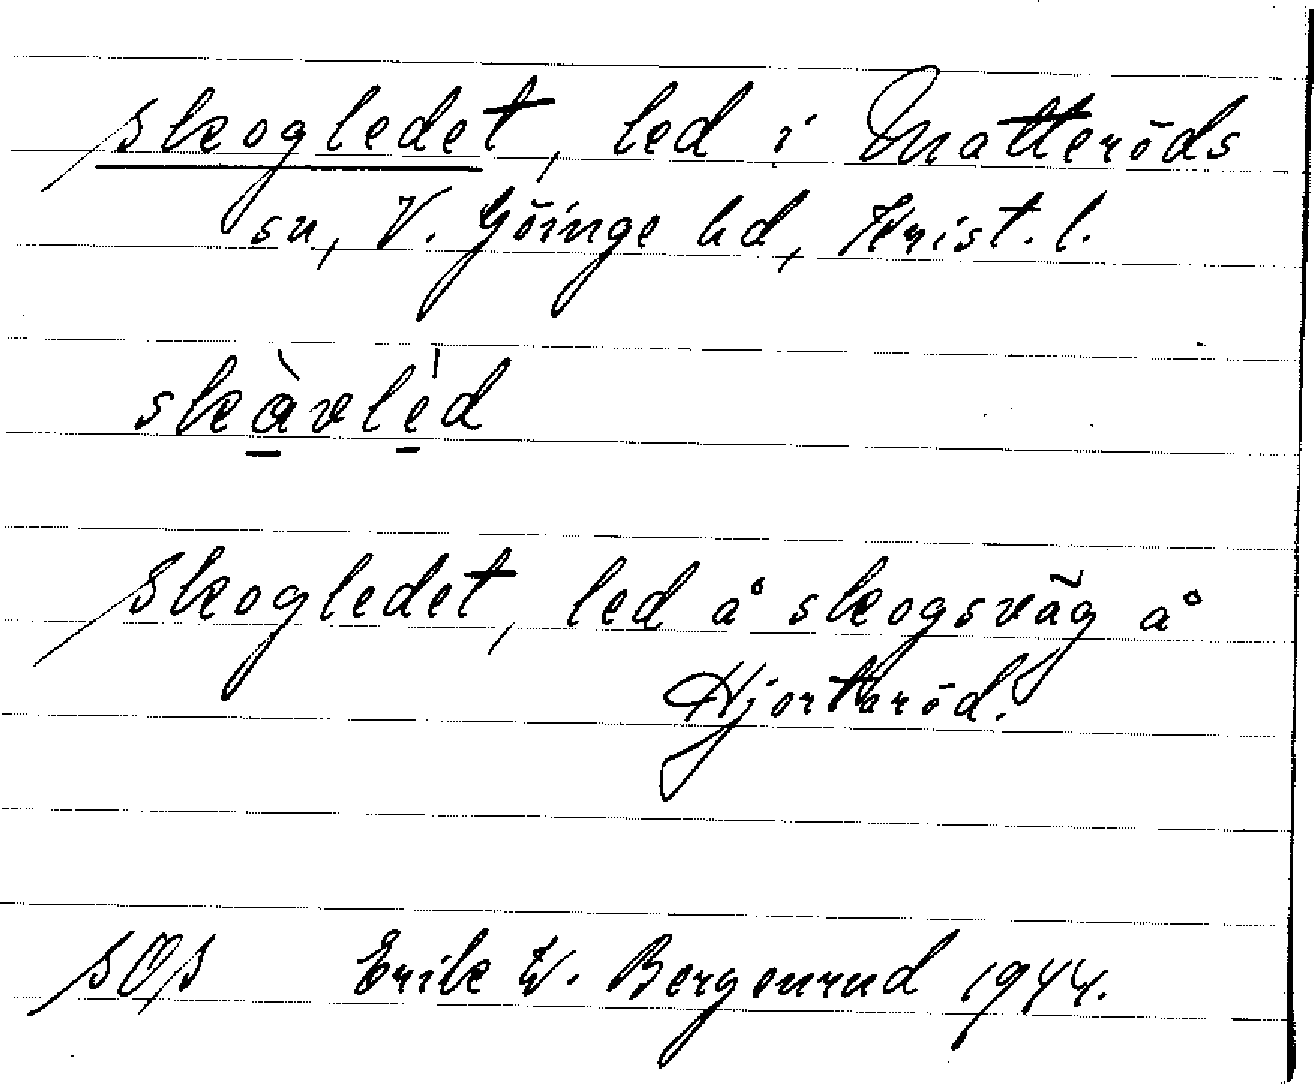 Skogledet, led i Matteröds
sn, V. Göinge hd, Krist. l.
skàvlèd
Skogledet, led å skogsväg å
Hjortaröd.
SOS Erik W. Bergenrud 1944.